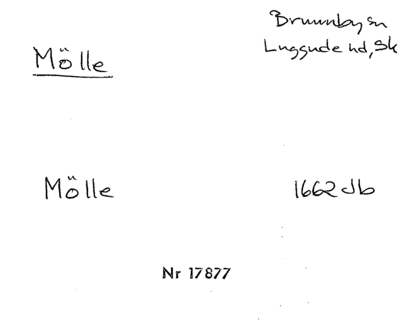 Brunnby sn
Mölle
Luggude hd, Sk
Mölle
1662 Jb
Nr 17877